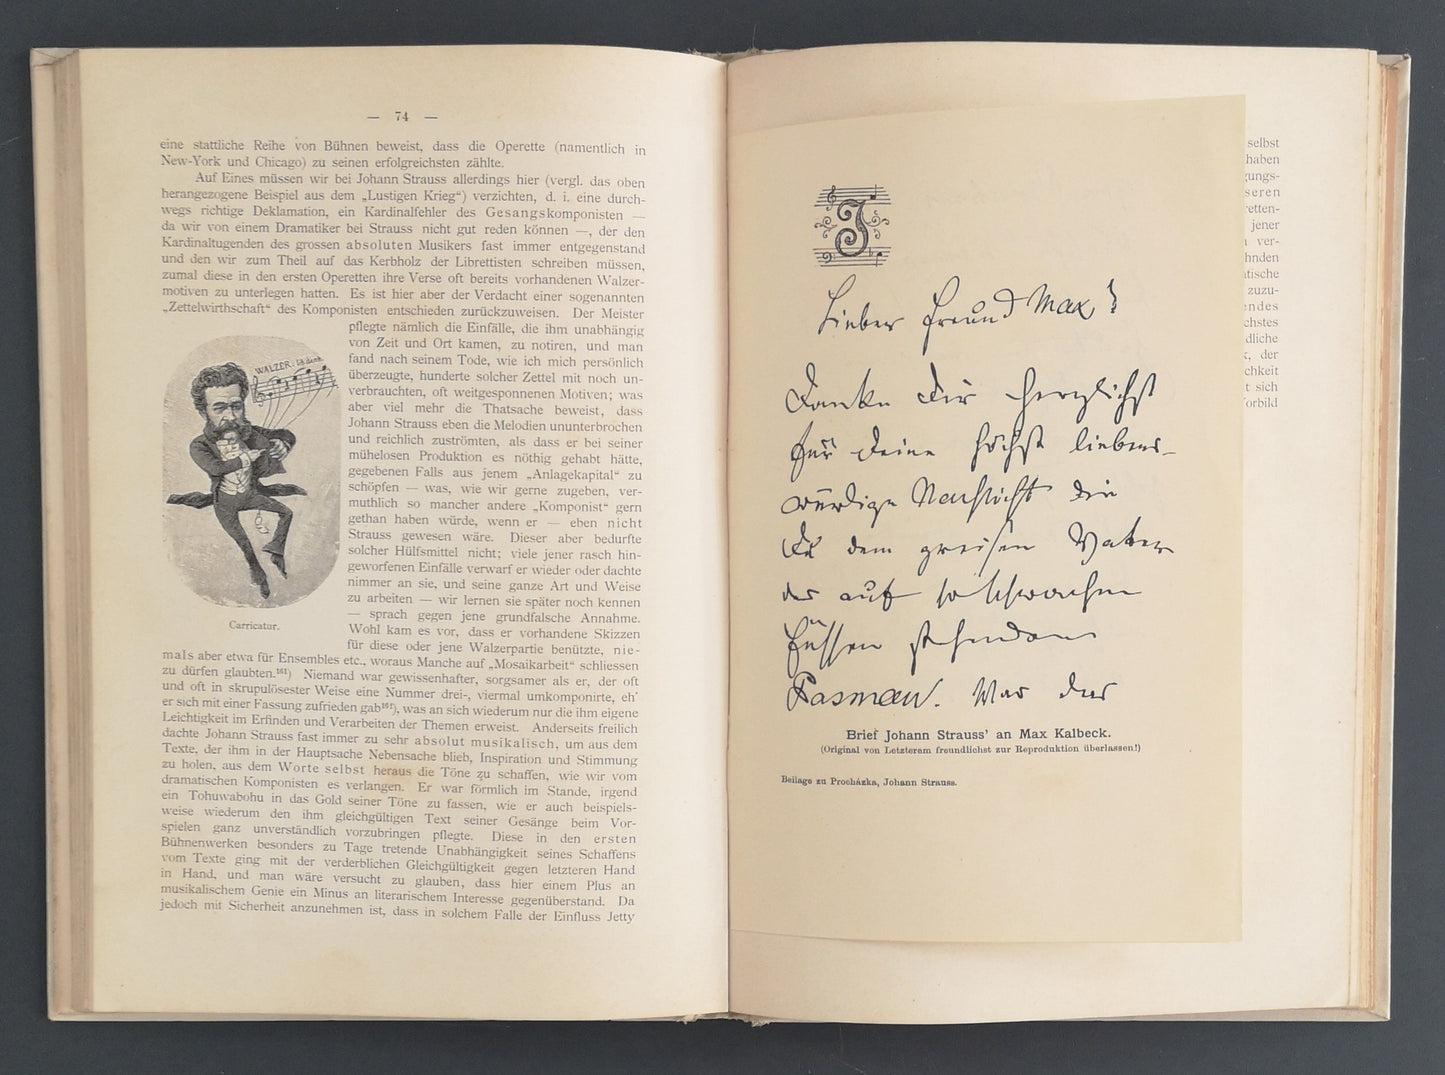 — 74 —
eine stattliche Reihe von Bühnen beweist, dass die Operette (namentlich in
New-York und Chicago) zu seinen erfolgreichsten zählte.
Auf Eines müssen wir bei Johann Strauss allerdings hier (vergl. das oben
herangezogene Beispiel aus dem „Lustigen Krieg“) verzichten, d. i. eine durch-
wegs richtige Deklamation, ein Kardinalfehler des Gesangskomponisten —
da wir von einem Dramatiker bei Strauss nicht gut reden können —, der den
Kardinaltugenden des grossen absoluten Musikers fast immer entgegenstand
und den wir zum Theil auf das Kerbholz der Librettisten schreiben müssen,
zumal diese in den ersten Operetten ihre Verse oft bereits vorhandenen Walzer-
motiven zu unterlegen hatten. Es ist hier aber der Verdacht einer sogenannten
„Zettelwirthschaft“ des Komponisten entschieden zurückzuweisen. Der Meister
pflegte nämlich die Einfälle, die ihm unabhängig
von Zeit und Ort kamen, zu notiren, und man
fand nach seinem Tode, wie ich mich persönlich
überzeugte, hunderte solcher Zettel mit noch un-
verbrauchten, oft weitgesponnenen Motiven; was
aber viel mehr die Thatsache beweist, dass
Johann Strauss eben die Melodien ununterbrochen
und reichlich zuströmten, als dass er bei seiner
mühelosen Produktion es nöthig gehabt hätte,
gegebenen Falls aus jenem „Anlagekapital“ zu
schöpfen — was, wie wir gerne zugeben, ver-
muthlich so mancher andere „Komponist“ gern
gethan haben würde, wenn er — eben nicht
Strauss gewesen wäre. Dieser aber bedurfte
solcher Hülfsmittel nicht; viele jener rasch hin-
geworfenen Einfälle verwarf er wieder oder dachte
nimmer an sie, und seine ganze Art und Weise
zu arbeiten — wir lernen sie später noch kennen
— sprach gegen jene grundfalsche Annahme.
Wohl kam es vor, dass er vorhandene Skizzen
für diese oder jene Walzerpartie benützte, nie-
mals aber etwa für Ensembles etc., woraus Manche auf „Mosaikarbeit“ schliessen
zu dürfen glaubten.¹⁶¹) Niemand war gewissenhafter, sorgsamer als er, der oft
und oft in skrupulösester Weise eine Nummer drei-, viermal umkomponirte, eh'
er sich mit einer Fassung zufrieden gab¹⁶²), was an sich wiederum nur die ihm eigene
Leichtigkeit im Erfinden und Verarbeiten der Themen erweist. Anderseits freilich
dachte Johann Strauss fast immer zu sehr absolut musikalisch, um aus dem
Texte, der ihm in der Hauptsache Nebensache blieb, Inspiration und Stimmung
zu holen, aus dem Worte selbst heraus die Töne zu schaffen, wie wir vom
dramatischen Komponisten es verlangen. Er war förmlich im Stande, irgend
ein Tohuwabohu in das Gold seiner Töne zu fassen, wie er auch beispiels-
weise wiederum den ihm gleichgültigen Text seiner Gesänge beim Vor-
spielen ganz unverständlich vorzubringen pflegte. Diese in den ersten
Bühnenwerken besonders zu Tage tretende Unabhängigkeit seines Schaffens
vom Texte ging mit der verderblichen Gleichgültigkeit gegen letzteren Hand
in Hand, und man wäre versucht zu glauben, dass hier einem Plus an
musikalischem Genie ein Minus an literarischem Interesse gegenüberstand. Da
jedoch mit Sicherheit anzunehmen ist, dass in solchem Falle der Einfluss Jetty
WALZER.
Carricatur.
J
Lieber Freund Max!
Danke Dir herzlichst
für Deine höchst liebens-
würdige Nachsicht die
Du dem greisen Vater
des auf so schwachen
Füssen stehenden
Pasman. War das
Brief Johann Strauss' an Max Kalbeck.
(Original von Letzterem freundlichst zur Reproduktion überlassen!)
Beilage zu Procházka, Johann Strauss.
selbst
haben
gungs-
seren
retten-
jener
ver-
hnden
tische
zuzu-
endes
chstes
dliche
, der
chkeit
t sich
orbild